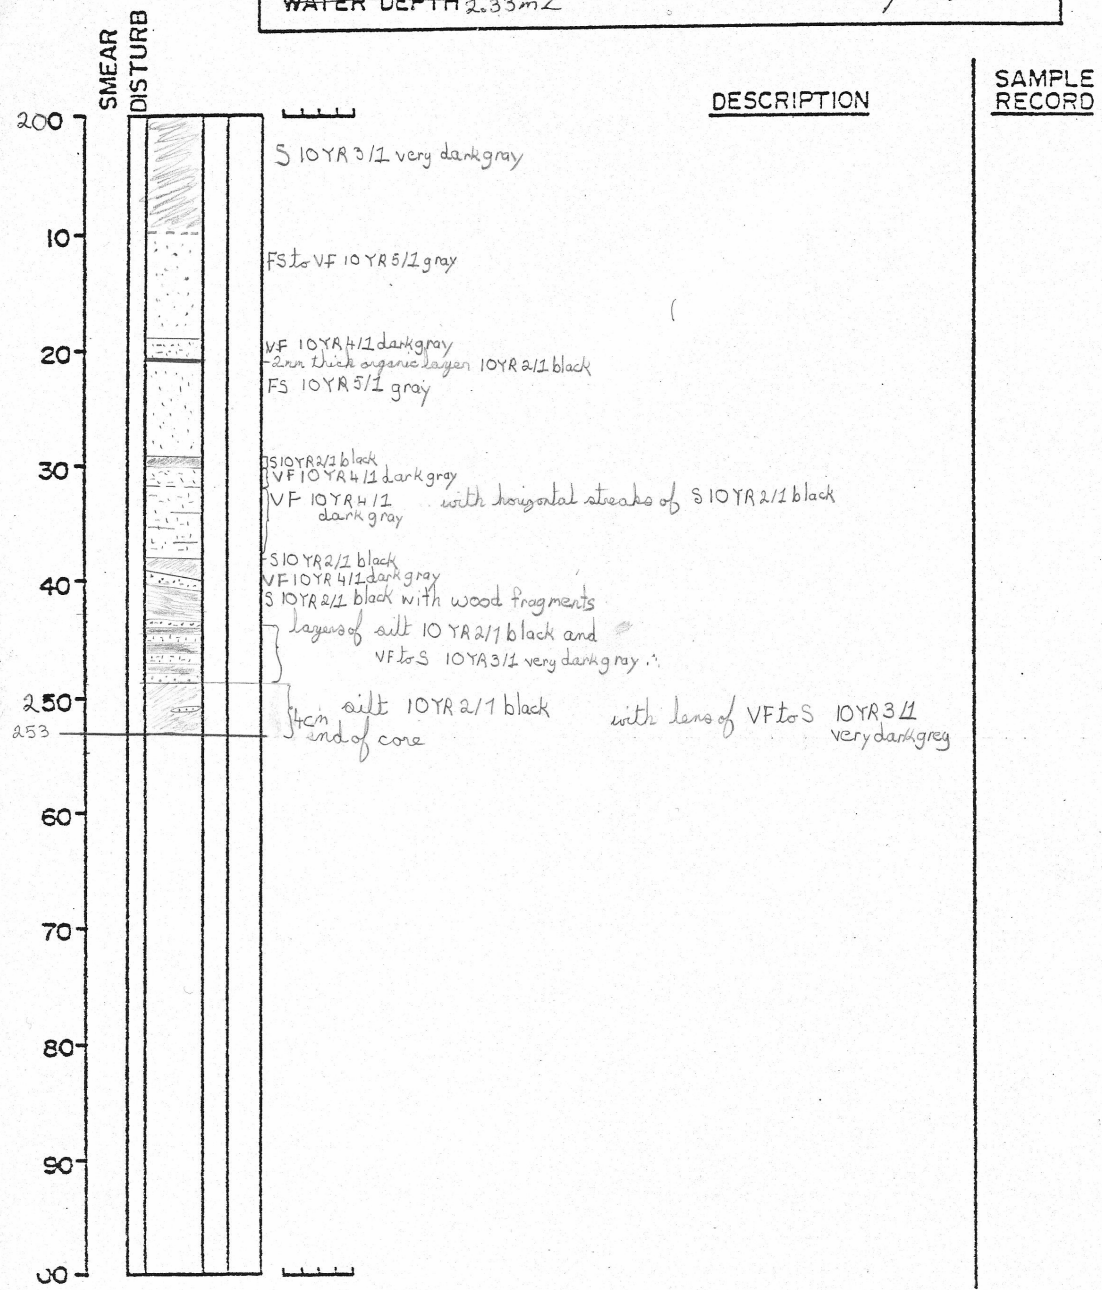 WATER DEPTH 2.33m
SMEAR
DISTURB
DESCRIPTION
SAMPLE
RECORD
200
S 10YR 3/1 very dark gray
10
FS to VF 10YR 5/1 gray
VF 10YR 4/1 dark gray
20
-2mm thick organic layer 10YR 2/1 black
FS 10YR 5/1 gray
S 10YR 2/1 black
30
VF 10YR 4/1 dark gray
VF 10YR 4/1 with horizontal streaks of S 10YR 2/1 black
dark gray
S 10YR 2/1 black
40
VF 10YR 4/1 dark gray
S 10YR 2/1 black with wood fragments
layers of silt 10YR 2/1 black and
VF to S 10YR 3/1 very dark gray
250
4cm silt 10YR 2/1 black with lens of VF to S 10YR 3/1
very dark grey
253
end of core
60
70
80
90
00